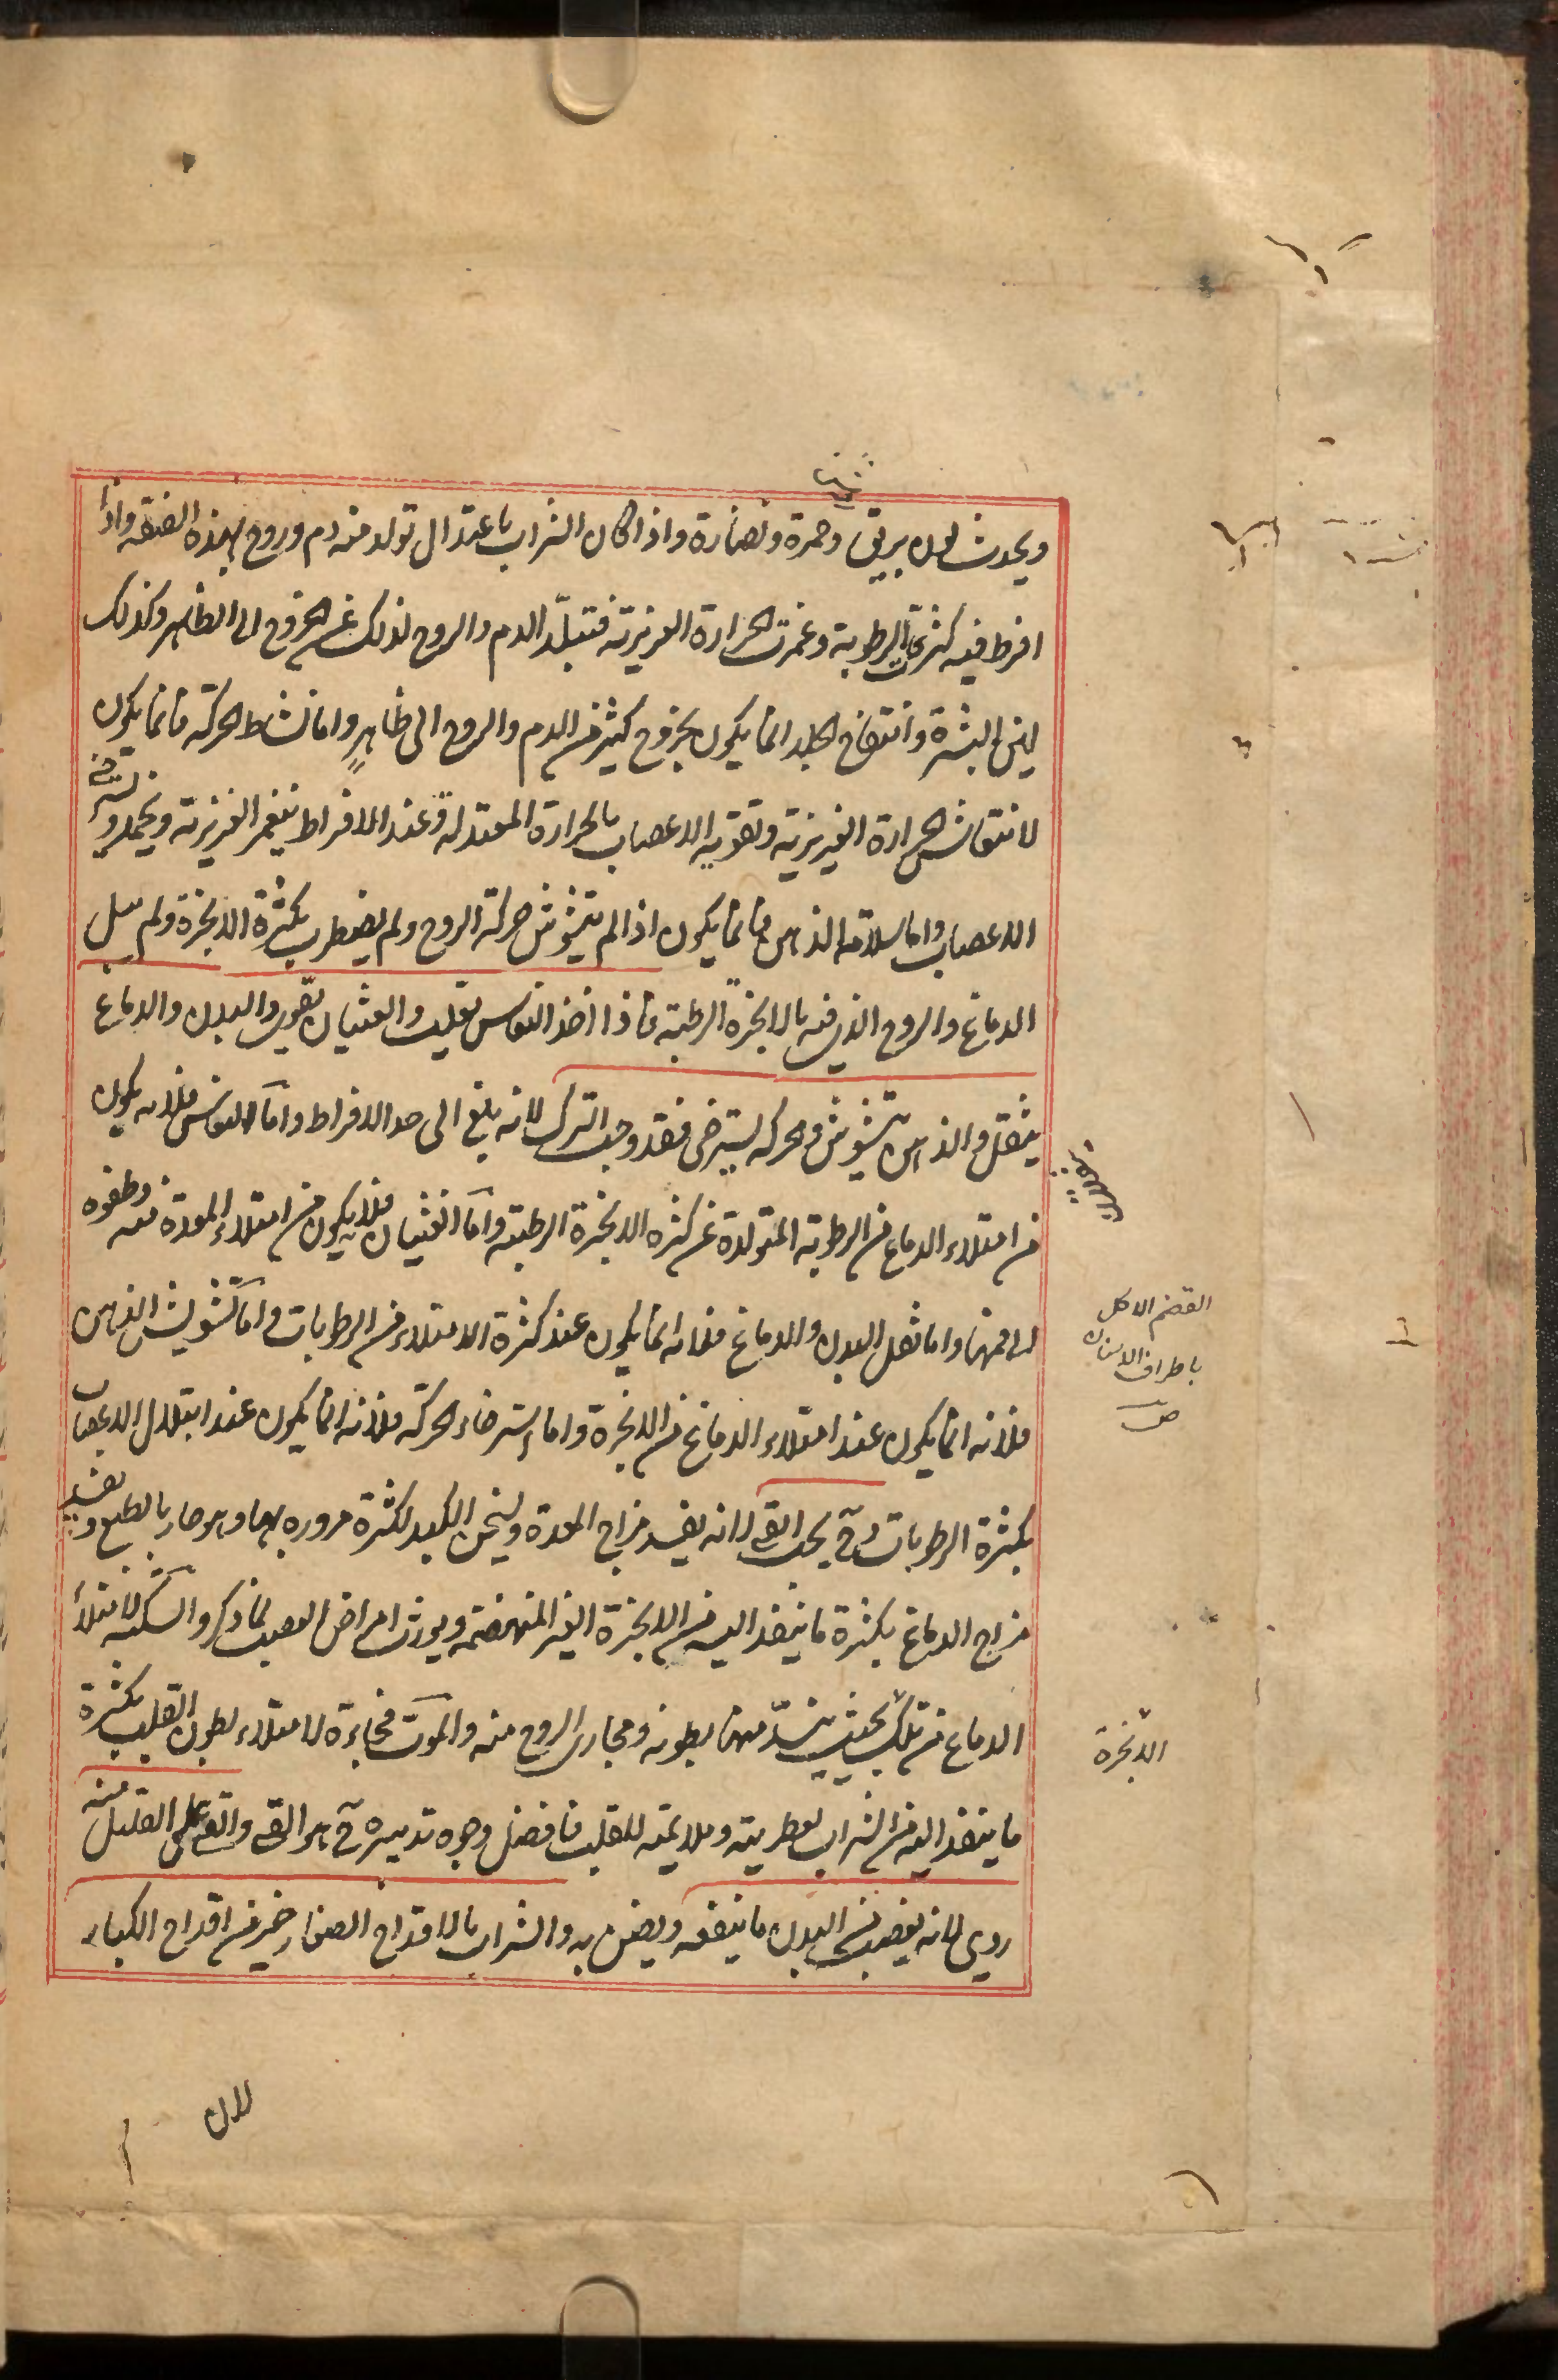 ويحدث لون بريق وحمرة ونضارة واذا كان الشراب باعتدال تولد منه دم وروح بهذه الصفة واذا
افرط فيه كثرت الرطوبة وغمرت الحرارة الغريزية فتبلّد الدم والروح لذلك عن الخروج الى الظاهر وكذلك
لين البشرة وانتفاخ الجلد انما يكون بخروج كثير من الدم والروح الى ظاهر واما نشاط الحركة فانما يكون
لانتعاش الحرارة الغريزية وتقوية الاعصاب بالحرارة المعتدلة وعند الافراط ينغمر الغريزية ويخمد و
الاعصاب واما سلامة الذهن فانما يكون اذا لم يتشوش حركة الروح ولم يضطرب بكثرة الابخرة ولم يبتل
الدماغ والروح الذي فيه بالابخرة الرطبة فاذا اخذ النعاس يغلب والغثيان يقوى والبدن والدماغ
يثقل والذهن يتشوش والحركة يسترخى فقد وجب الترك لانه بلغ الى حد الافراط واما النعاس فلانه يكون
من امتلاء الدماغ من الرطوبة المتولدة عن كثرة الابخرة الرطبة واما الغثيان فلانه يكون من امتلاء المعدة منه وطفوه
الى فمها واما ثقل البدن والدماغ فلانه انما يكون عند كثرة الامتلاء من الرطوبات واما تشويش الذهن
فلانه انما يكون عند امتلاء الدماغ من الابخرة واما استرخاء الحركة فلانه انما يكون عند ابتلال الاعصاب
بكثرة الرطوبات وح يجب القى لانه يفسد مزاج المعدة ويسخن الكبد لكثرة مروره بهما وهو حار بالطبع ويفسد
مزاج الدماغ بكثرة ما ينفذ اليه من الابخرة الغير المنهضمة ويورث امراض العصب لما ذكر والسكتة لامتلاء
الدماغ من تلك بحيث ينسدّ منها بطونه ومجارى الروح منه والموت فجاءة لامتلاء بطون القلب بكثرة
ما ينفذ اليه من الشراب لعطريته وملايمته للقلب فافضل وجوه تدبيره ح هو القى والقى على القليل منه
ردى لانه يغصب من البدن ما ينفعه ويضر به والشراب بالاقداح الصغار خير من اقداح الكبار
القضم الاكل
باطراف الاسنان
ص
الابخرة
لان